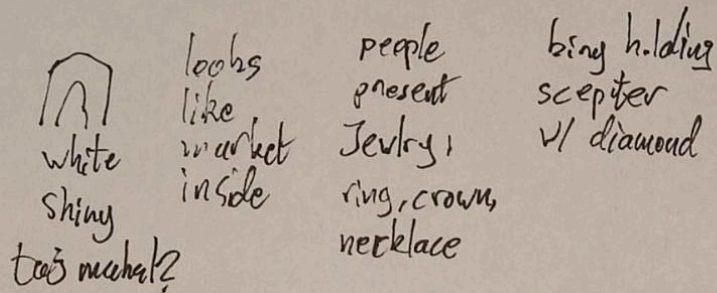 white
shiny
taj mahal?
looks
like
market
inside
people
present
Jewlry,
ring, crown,
necklace
king holding
scepter
w/ diamond